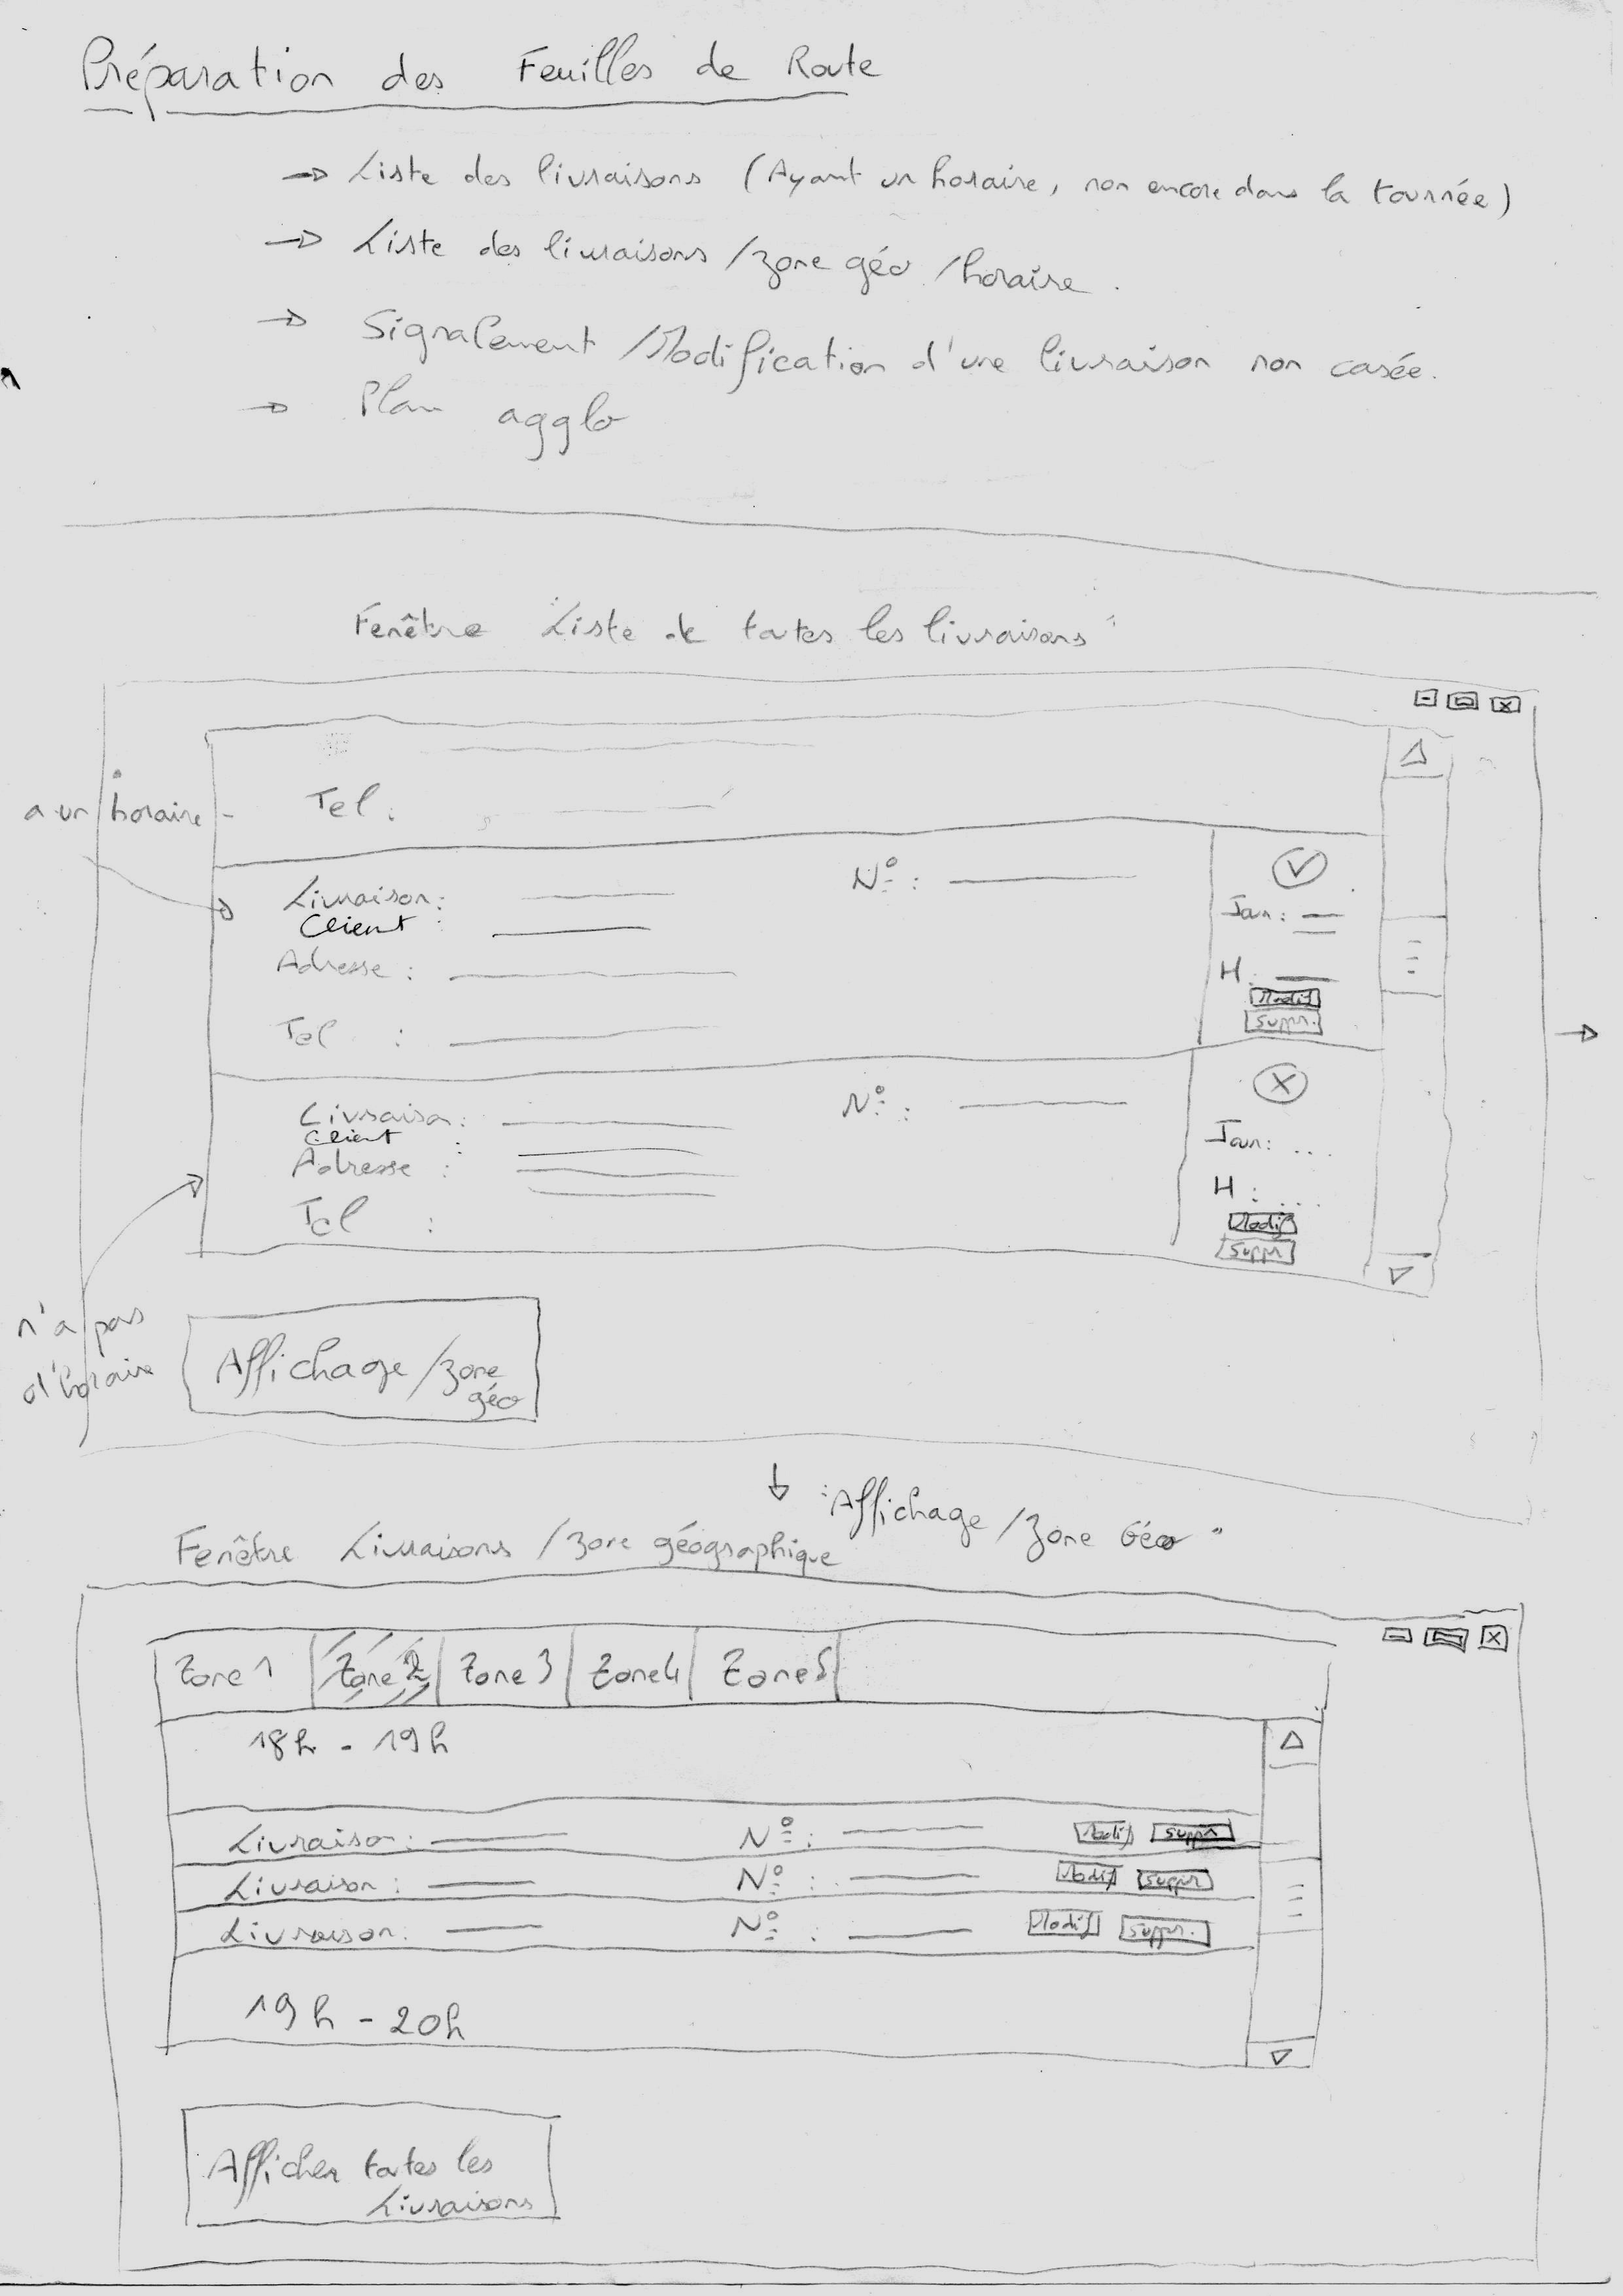 Préparation des Feuilles de Route
→ Liste des livraisons (Ayant un horaire, non encore dans la tournée)
→ Liste des livraisons /zone géo /horaire.
→ Signalement /Modification d'une livraison non casée.
→ Plan agglo
Fenêtre Liste de toutes les livraisons
a un horaire
Tel :
Livraison : N° :
Client :
Jour :
Adresse :
H :
Modif
Tel :
Suppr.
Livraison : N° :
Client :
Jour : ...
Adresse :
H : ...
Tel :
Modif
Suppr
n'a pas
d'horaire
Affichage /zone
géo
↓ "Affichage /Zone Géo"
Fenêtre Livraisons /zone géographique
Zone 1 Zone 2 Zone 3 Zone 4 Zone 5
18h - 19h
Livraison : N° : Modif Suppr
Livraison : N° : Modif Suppr
Livraison : N° : Modif Suppr.
19h - 20h
Afficher toutes les
Livraisons